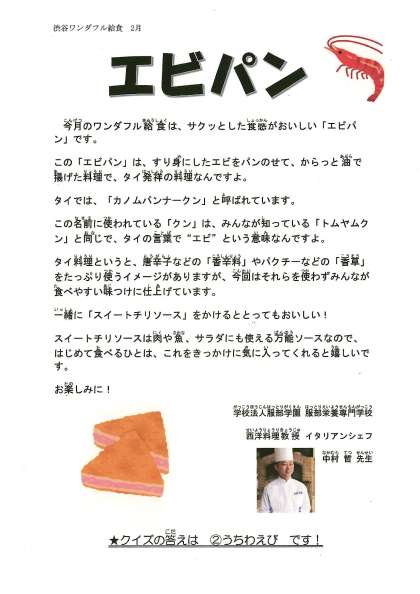 渋谷ワンダフル給食　2月
エビパン
今月のワンダフル給食は、サクッとした食感がおいしい「エビパ
ン」です。
この「エビパン」は、すり身にしたエビをパンのせて、からっと油で
揚げた料理で、タイ発祥の料理なんですよ。
タイでは、「カノムパンナークン」と呼ばれています。
この名前に使われている「クン」は、みんなが知っている「トムヤムク
ン」と同じで、タイの言葉で“エビ”という意味なんですよ。
タイ料理というと、唐辛子などの「香辛料」やパクチーなどの「香草」
をたっぷり使うイメージがありますが、今回はそれらを使わずみんなが
食べやすい味つけに仕上げています。
一緒に「スイートチリソース」をかけるととってもおいしい！
スイートチリソースは肉や魚、サラダにも使える万能ソースなので、
はじめて食べるひとは、これをきっかけに気に入ってくれると嬉しいで
す。
お楽しみに！
学校法人服部学園 服部栄養専門学校
西洋料理教授 イタリアンシェフ
中村 哲 先生
★クイズの答えは　②うちわえび　です！